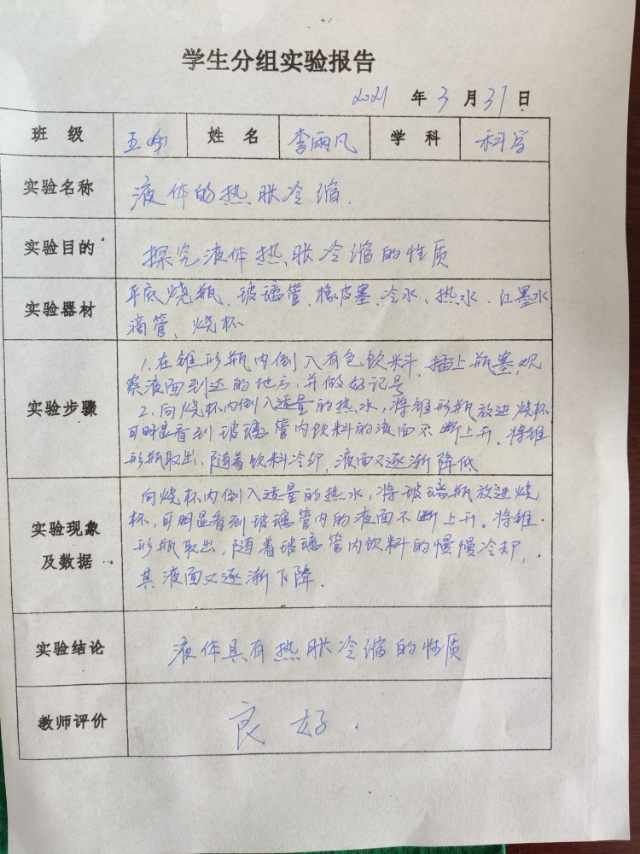 学生分组实验报告
2021 年 3 月 31 日
班 级 五 姓 名 李雨凡 学 科 科学
实验名称 液体的热胀冷缩.
实验目的 探究液体热胀冷缩的性质
平底烧瓶、玻璃管、橡皮塞、冷水、热水、红墨水
实验器材
滴管、烧杯
1.在锥形瓶内倒入有色饮料,插上瓶塞,观
察液面到达的地方,并做好记号
实验步骤
2.向烧杯内倒入适量的热水,将锥形瓶放进烧杯
可明显看到玻璃管内饮料的液面不断上升。将锥
形瓶取出,随着饮料冷却,液面又逐渐降低
向烧杯内倒入适量的热水,将玻璃瓶放进烧
杯,可明显看到玻璃管内的液面不断上升。将锥
实验现象
及数据
形瓶取出,随着玻璃管内饮料的慢慢冷却,
其液面又逐渐下降.
实验结论 液体具有热胀冷缩的性质
教师评价 良好.